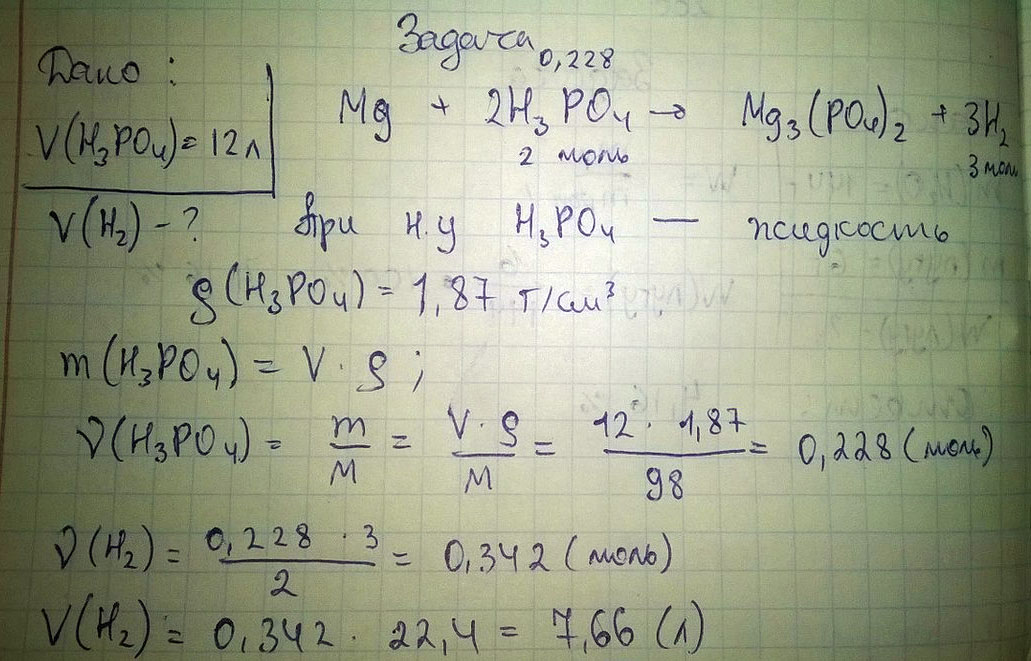 Задача
Дано :
0,228
Mg + 2H₃PO₄ → Mg₃(PO₄)₂ + 3H₂
V(H₃PO₄) = 12 л
2 моль 3 моль
V(H₂) - ? При н.у H₃PO₄ — жидкость
ρ(H₃PO₄) = 1,87 г/см³
m(H₃PO₄) = V · ρ ;
ν(H₃PO₄) = m/M = V · ρ/M = 12 · 1,87/98 = 0,228 (моль)
ν(H₂) = 0,228 · 3/2 = 0,342 (моль)
V(H₂) = 0,342 · 22,4 = 7,66 (л)